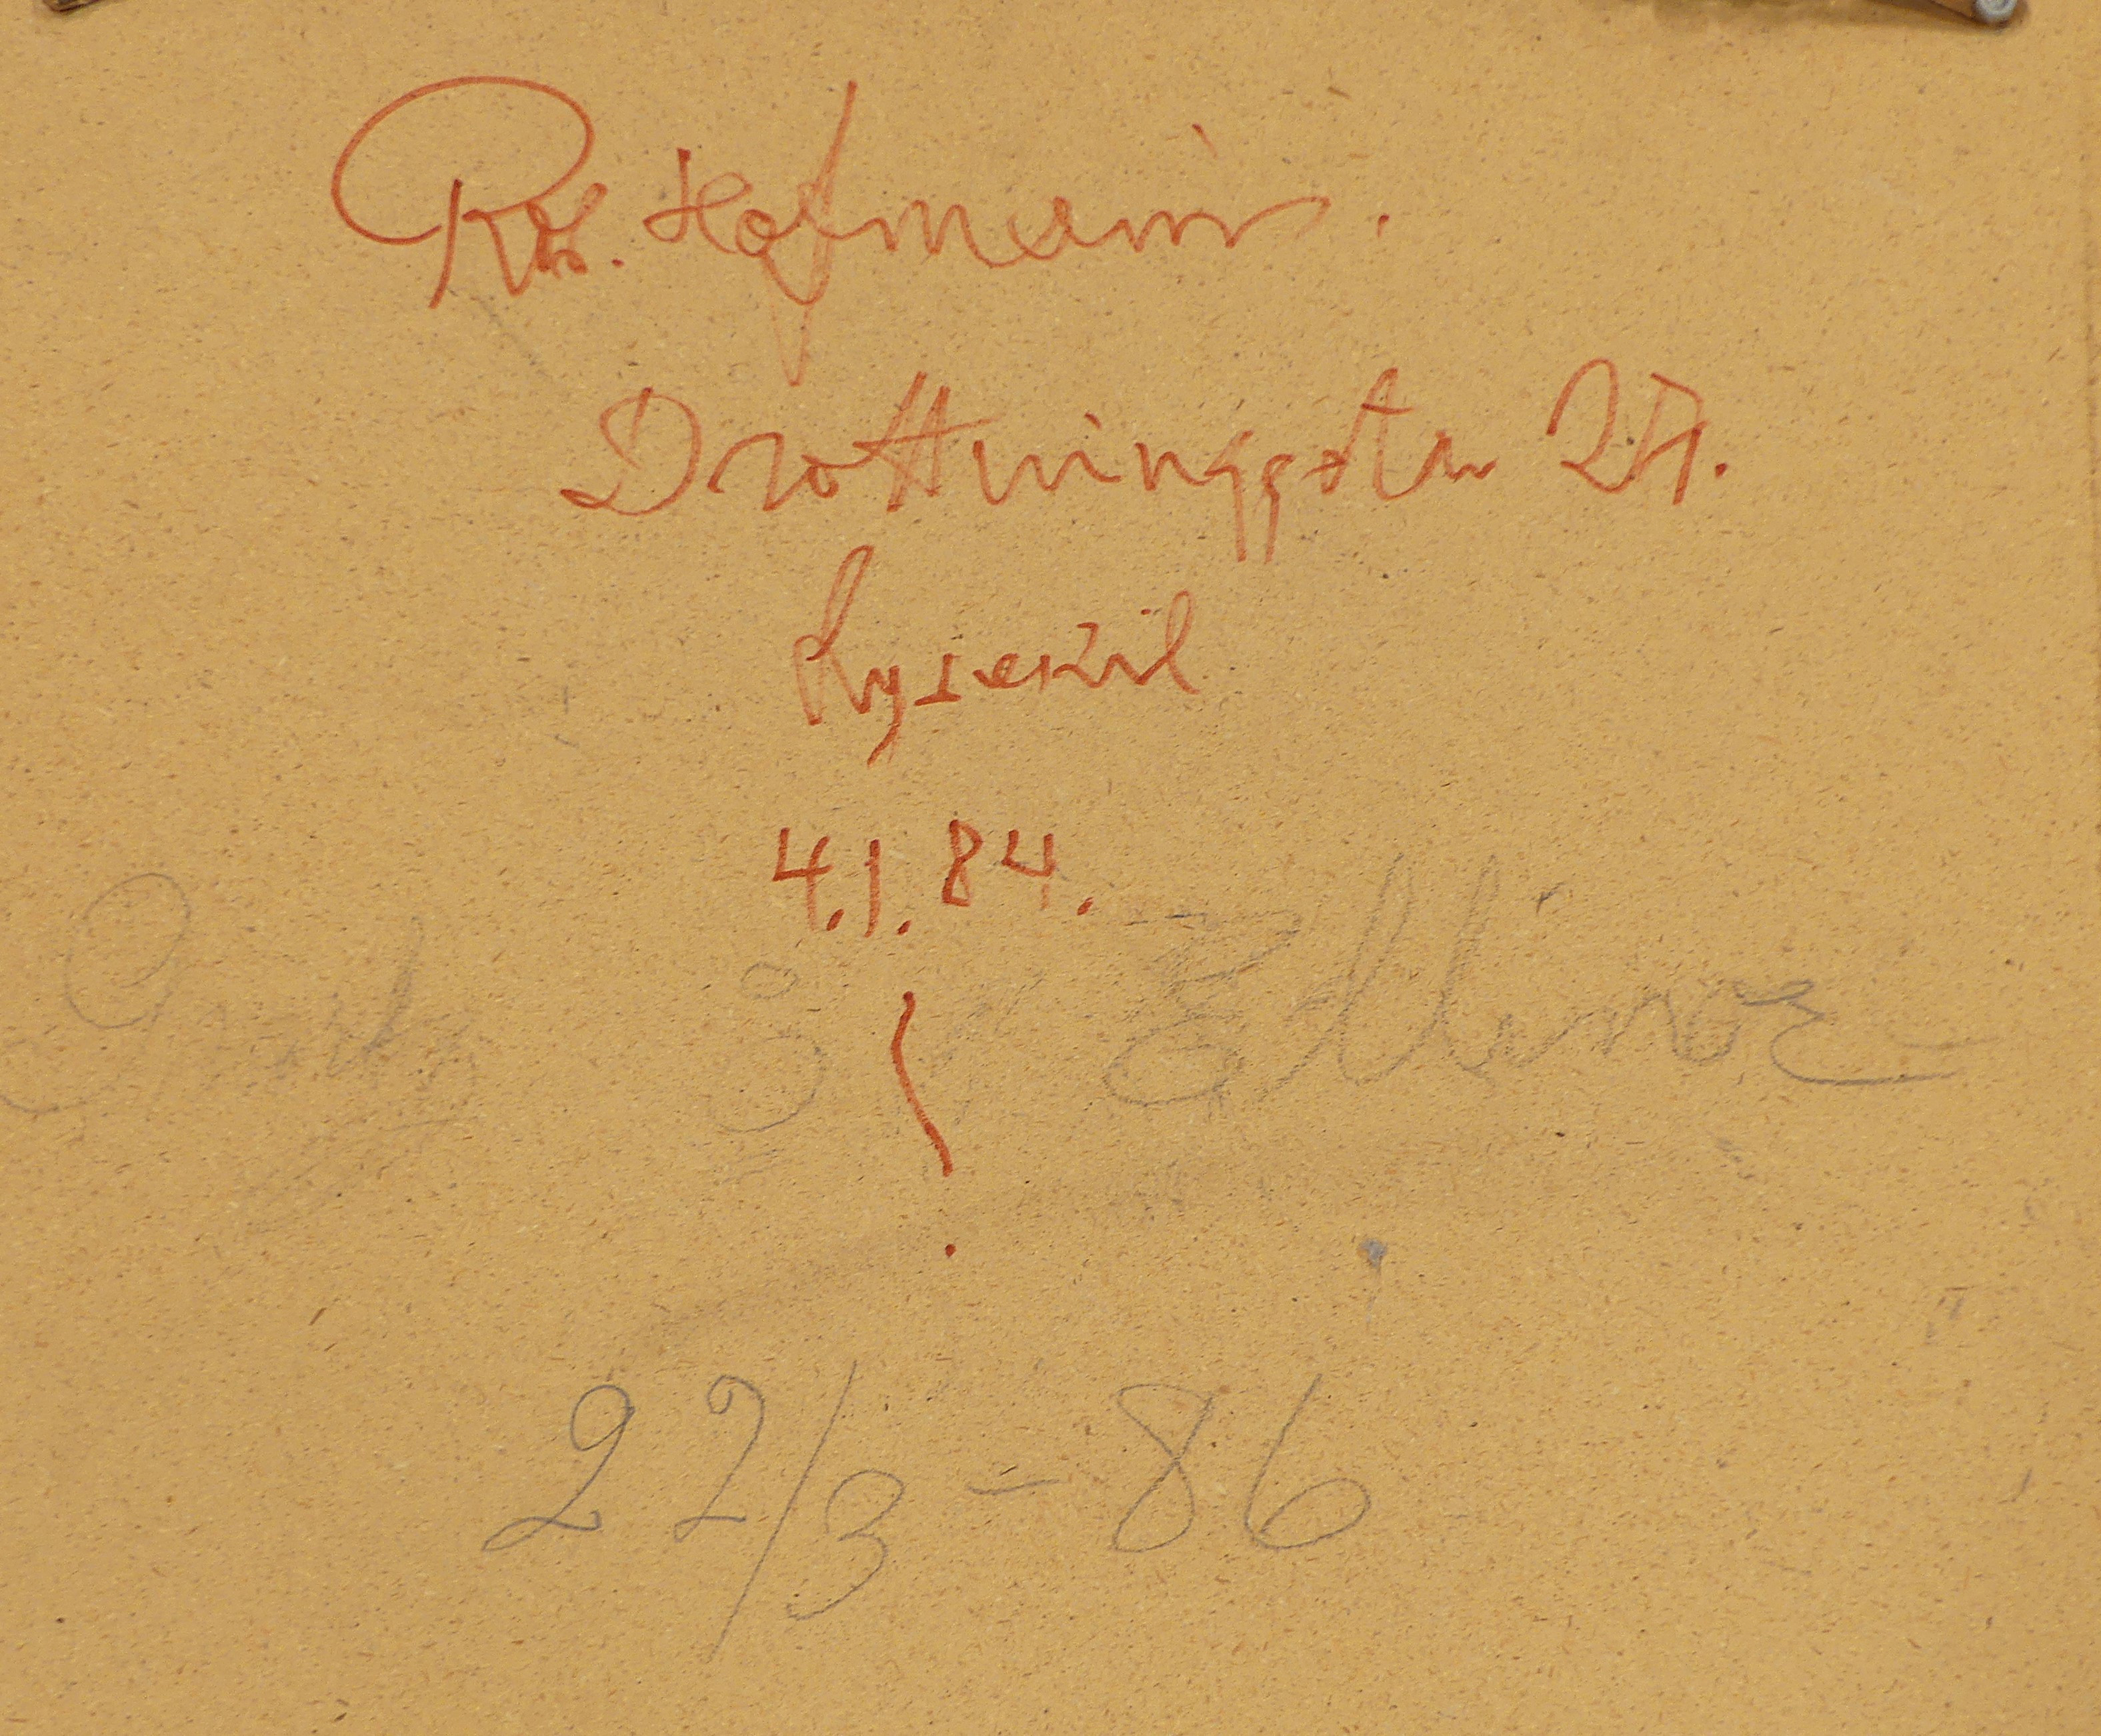 Hofmann.
Drottninggatan
Lysekil
4.1.84.
Ellinor
22/3 - 86